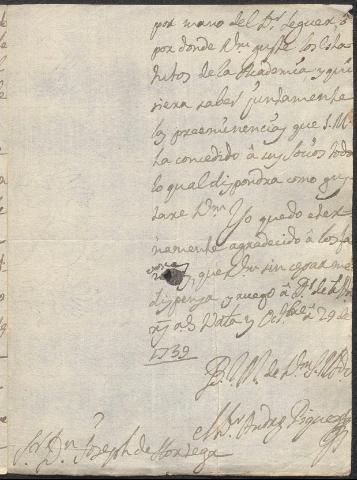 por mano del Dr. Seguer, ò
por donde Vm guste los Esta
tutos de la Academia, y qui
siera saber juntamente
las preeminencias que S. M.
ha concedido â sus socios todo
lo qual dispondra como gus
tare Vm. Yo quedo eter
namente agradecido â los fa
que Vm sin cesar me
dispenza y ruego â Ds. le
as. Vala y Octbre â 29 de
1739
B. l. M. de Vm
Andres Piquer
Sr. Dn. Joseph de Hortega